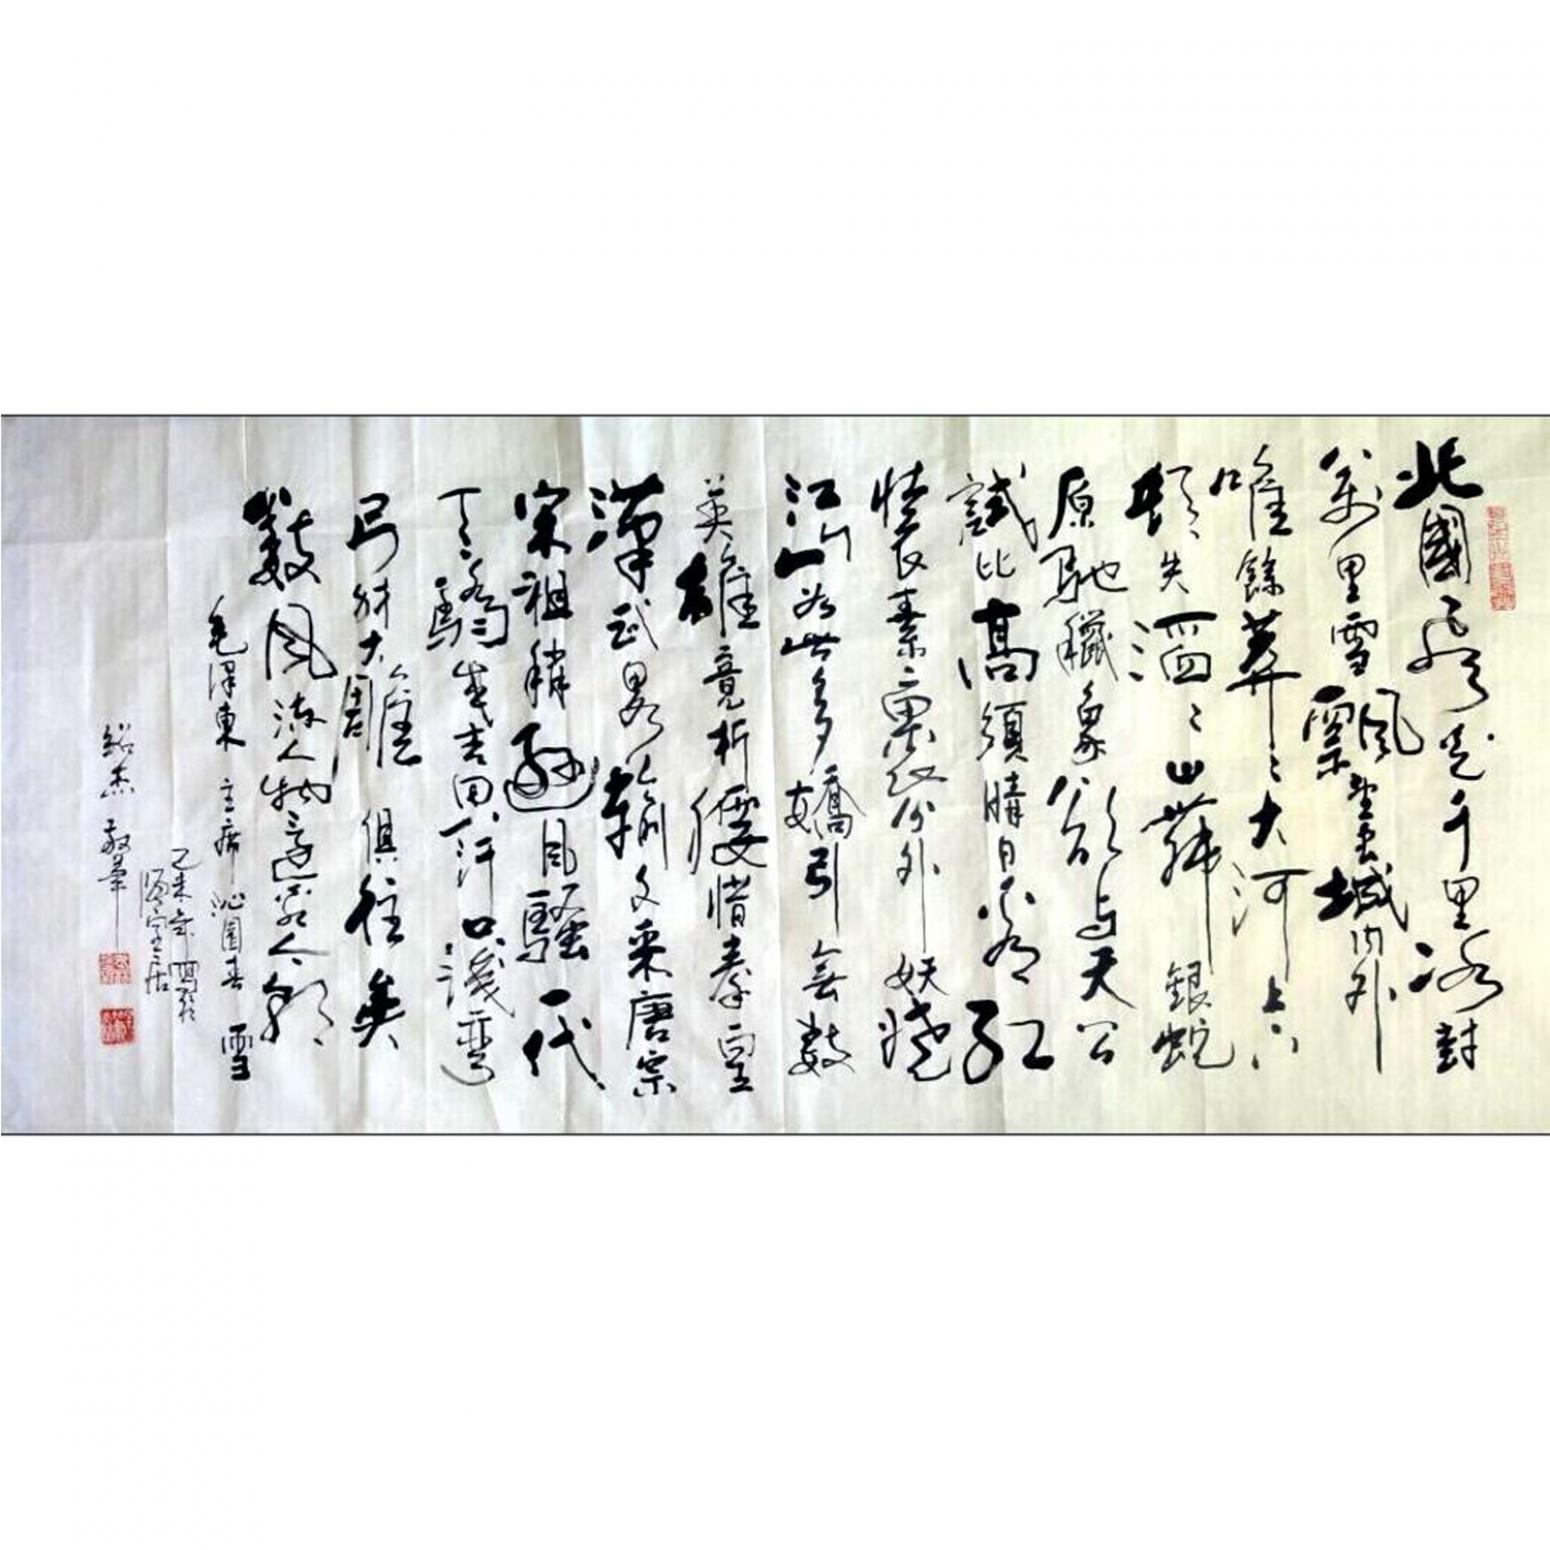 北國風光千里冰封
萬里雪飄望長城内外
唯餘莽莽大河上下
頓失滔滔山舞銀蛇
原馳蠟象欲与天公
試比高須晴日看紅
裝素裹分外妖嬈
江山如此多嬌引無數
英雄竟折腰惜秦皇
漢武略輸文采唐宗
宋祖稍遜風騷一代
天驕成吉思汗只識彎
弓射大雕俱往矣
數風流人物還看今朝
毛澤東主席沁園春雪
乙未
紹杰敬筆